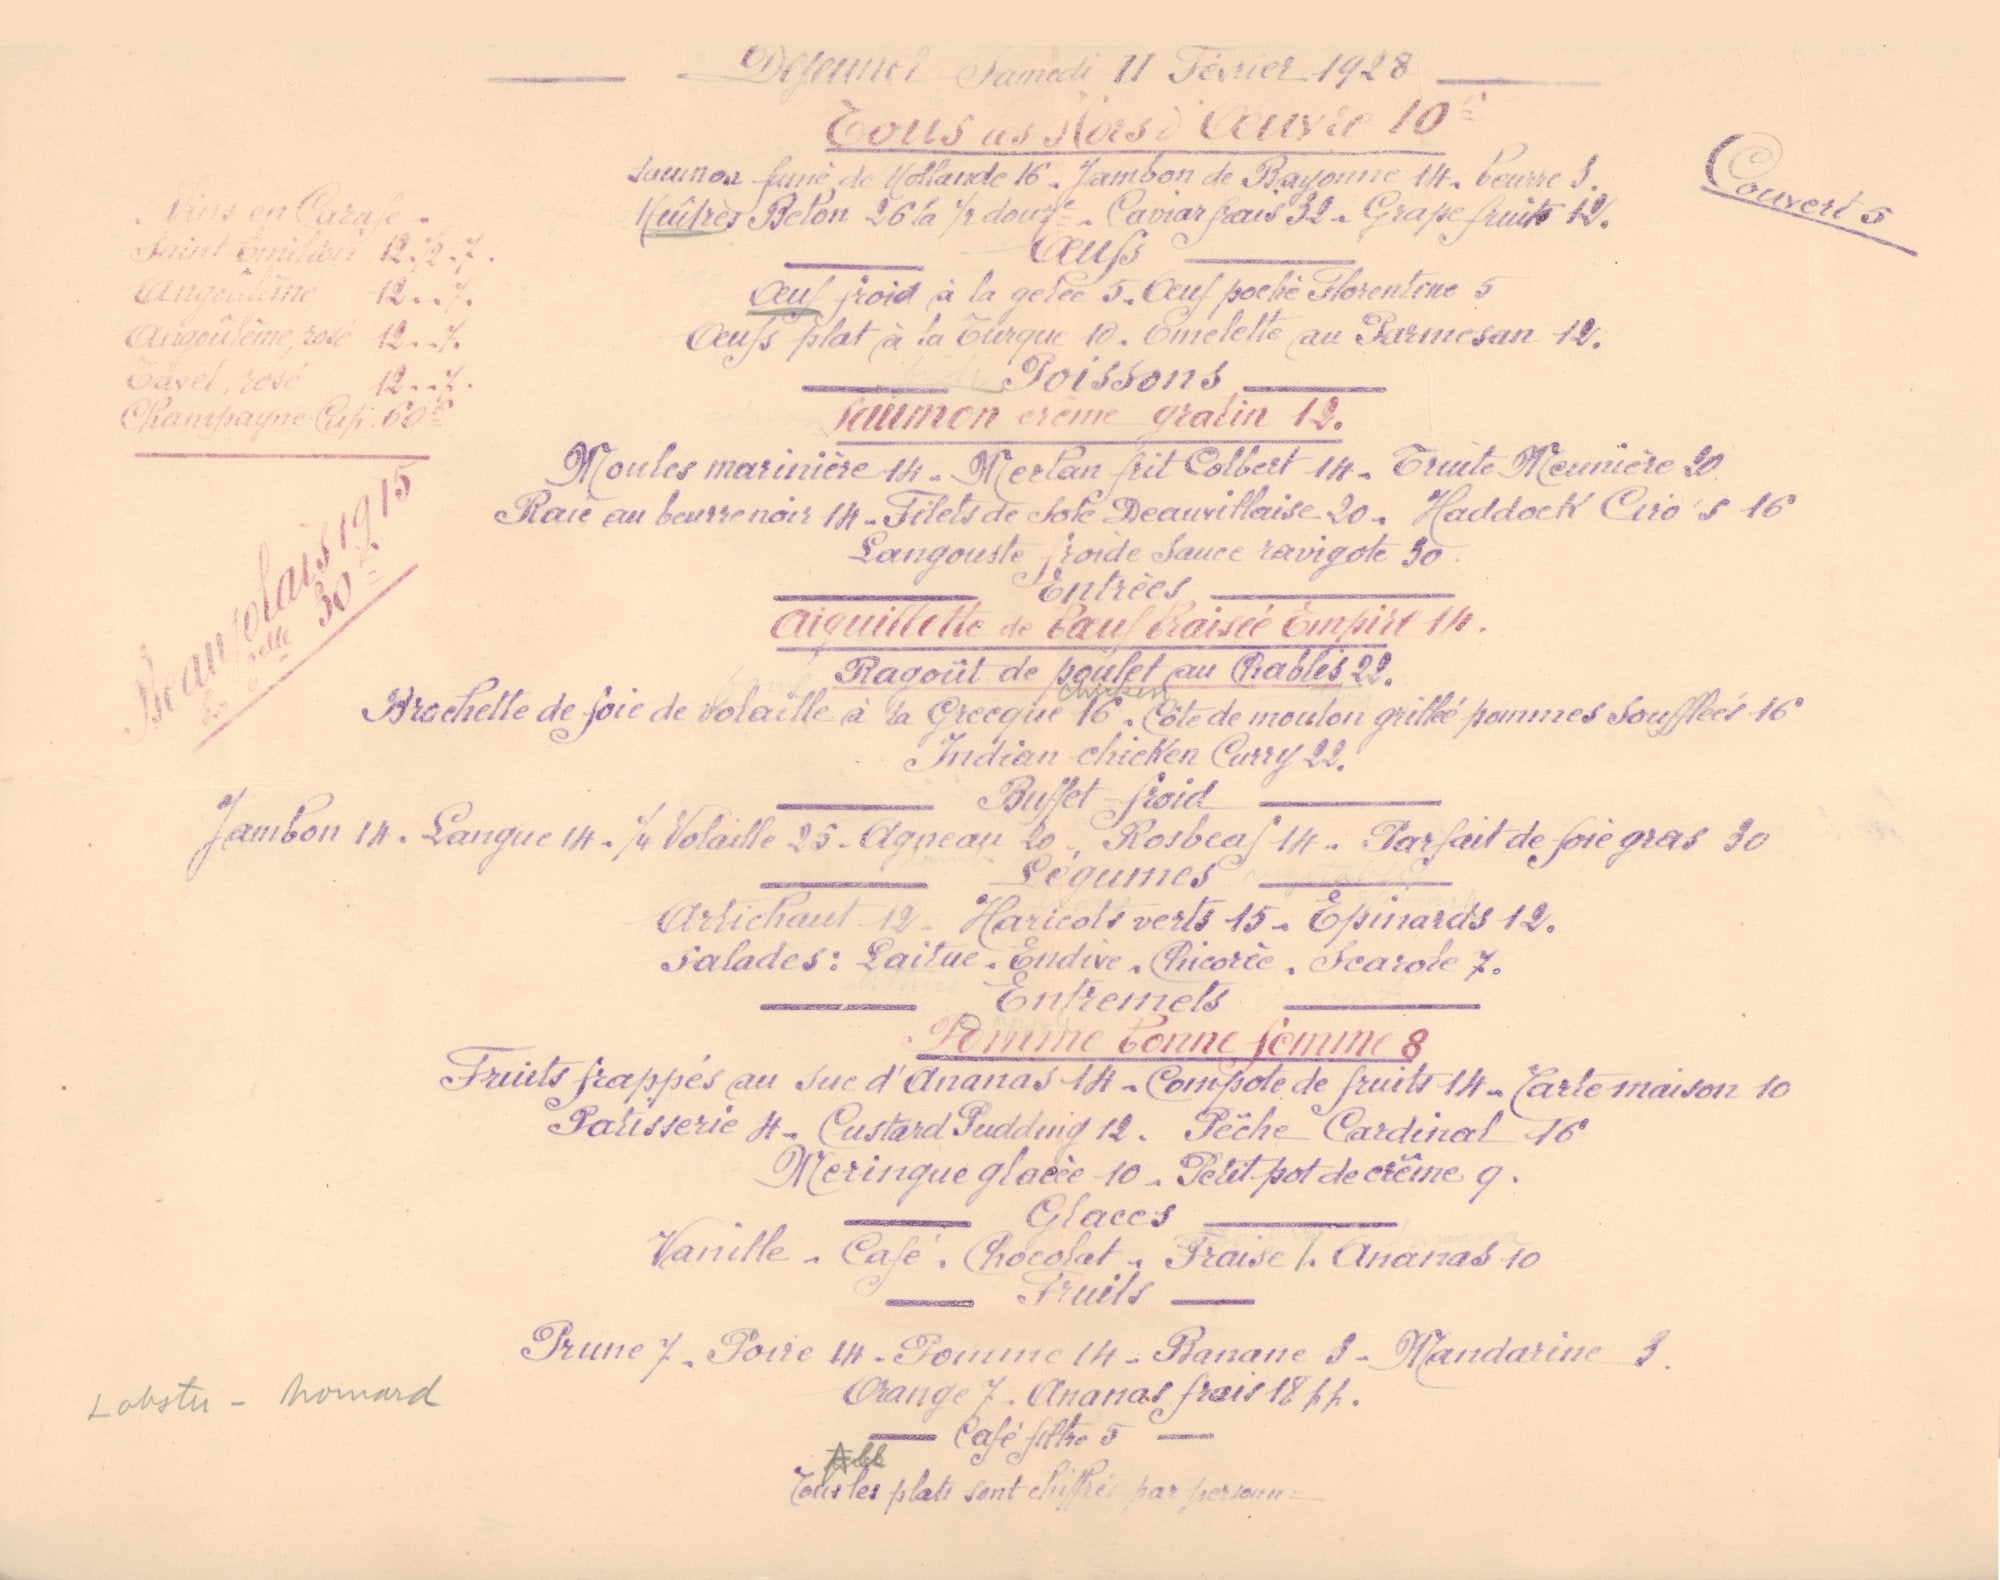 Déjeuner Samedi 11 Février 1928
Tous les Hors d'Œuvre 10 fr
Saumon fumé de Hollande 16 - Jambon de Bayonne 14 - beurre 3.
Huîtres Belon 26 la 1/2 douze - Caviar frais 32 - Grape fruits 12.
Couvert 5
Vins en Carafe
Saint Emilion 12. 1/2 . 7.
Angoulême 12 . . 7.
Angoulême, rosé 12 . . 7.
Tavel, rosé 12 . . 7.
Champagne Cup 60 fr
Beaujolais 1915
La Belle 30 fr
Œufs
Œuf froid à la gelée 5 - Œuf poché Florentine 5
Œufs plat à la Turque 10 - Omelette au Parmesan 12.
Poissons
Saumon crème gratin 12.
Moules marinière 14 - Merlan frit Colbert 14 - Truite Meunière 20
Raie au beurre noir 14 - Filets de Sole Deauvillaise 20 - Haddock Ciro's 16
Langouste froide Sauce ravigote 30.
Entrées
Aiguillette de bœuf braisée Empire 14.
Ragoût de poulet au Chablis 22.
chicken
Brochette de foie de volaille à la Grecque 16 - Côte de mouton grillée pommes Soufflées 16
Indian chicken Curry 22.
Buffet froid
Jambon 14 - Langue 14 - 1/4 Volaille 25 - Agneau 20 - Rosbeaf 14 - Parfait de foie gras 30
Légumes
Artichaut 12 - Haricots verts 15 - Epinards 12.
Salades: Laitue - Endive - Chicorée - Scarole 7.
Entremets
Pomme bonne femme 8
Fruits frappés au suc d'Ananas 14 - Compote de fruits 14 - Tarte maison 10
Patisserie 4 - Custard Pudding 12 - Pêche Cardinal 16
Meringue glacée 10 - Petit pot de crème 9.
Glaces
Vanille - Café - Chocolat - Fraise - Ananas 10
Fruits
Prune 7 - Poire 14 - Pomme 14 - Banane 3 - Mandarine 3.
Orange 7 - Ananas frais 18 pp.
Lobster - homard
Café filtre 5
All
Tous les plats sont chiffrés par personne